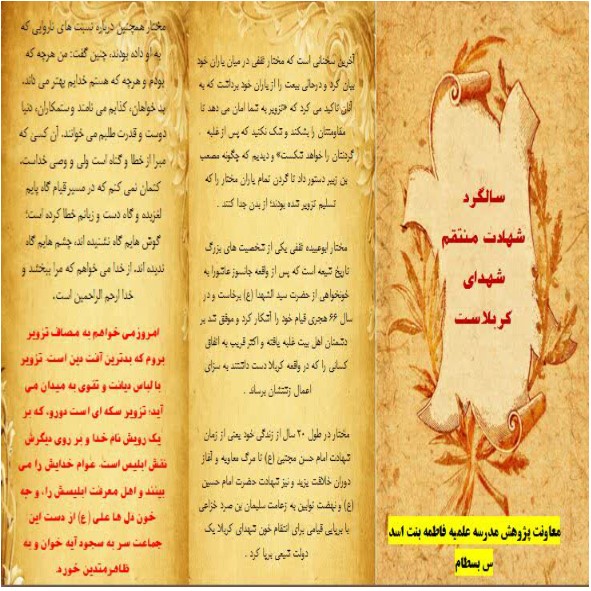 سالگرد
شهادت منتقم
شهدای
کربلاست
معاونت پژوهش مدرسه علمیه فاطمه بنت اسد
س بسطام
آخرین سخنانی است که مختار ثقفی در میان یاران خود
بیان کرد و درحالی بیعت را از یاران خود برداشت که به
آنان تاکید می کرد که «تزویر به شما امان می دهد تا
مقاومتتان را بشکند و شک نکنید که پس از غلبه
گردنتان را خواهد شکست» و دیدیم که چگونه مصعب
بن زبیر دستور داد تا گردن تمام یاران مختار را که
تسلیم تزویر شده بودند؛ از بدن جدا کنند .
مختار ابوعبیده ثقفی یکی از شخصیت های بزرگ
تاریخ شیعه است که پس از واقعه جانسوز عاشورا به
خونخواهی از حضرت سید الشهدا (ع) برخاست و در
سال ۶۶ هجری قیام خود را آشکار کرد و موفق شد بر
دشمنان اهل بیت غلبه یافته و اکثر قریب به اتفاق
کسانی را که در واقعه کربلا دست داشتند به سزای
اعمال زشتشان برساند .
مختار در طول ۲۰ سال از زندگی خود یعنی از زمان
شهادت امام حسن مجتبی (ع) تا مرگ معاویه و آغاز
دوران خلافت یزید و نیز شهادت حضرت امام حسین
(ع) و نهضت توابین به زعامت سلیمان بن صرد خزاعی
با برپایی قیامی برای انتقام خون شهدای کربلا یک
دولت شیعی برپا کرد .
مختار همچنین درباره نسبت های ناروایی که
به او داده بودند، چنین گفت: من هرچه که
بودم و هرچه که هستم خدایم بهتر می داند،
بدخواهان، کذابم می نامند و ستمکاران، دنیا
دوست و قدرت طلبم می خوانند. آن کسی که
مبرا از خطا و گناه است ولی و وصی خداست.
کتمان نمی کنم که در مسیر قیام گاه پایم
لغزیده و گاه دست و زبانم خطا کرده است؛
گوش هایم گاه نشنیده اند، چشم هایم گاه
ندیده اند. از خدا می خواهم که مرا ببخشد و
خدا ارحم الراحمین است.
امروز می خواهم به مصاف تزویر
بروم که بدترین آفت دین است. تزویر
با لباس دیانت و تقوی به میدان می
آید؛ تزویر سکه ای است دورو، که بر
یک رویش نام خدا و بر روی دیگرش
نقش ابلیس است. عوام خدایش را می
بینند و اهل معرفت ابلیسش را، و چه
خون دل ها علی (ع) از دست این
جماعت سر به سجود آیه خوان و به
ظاهر متدین خورد.